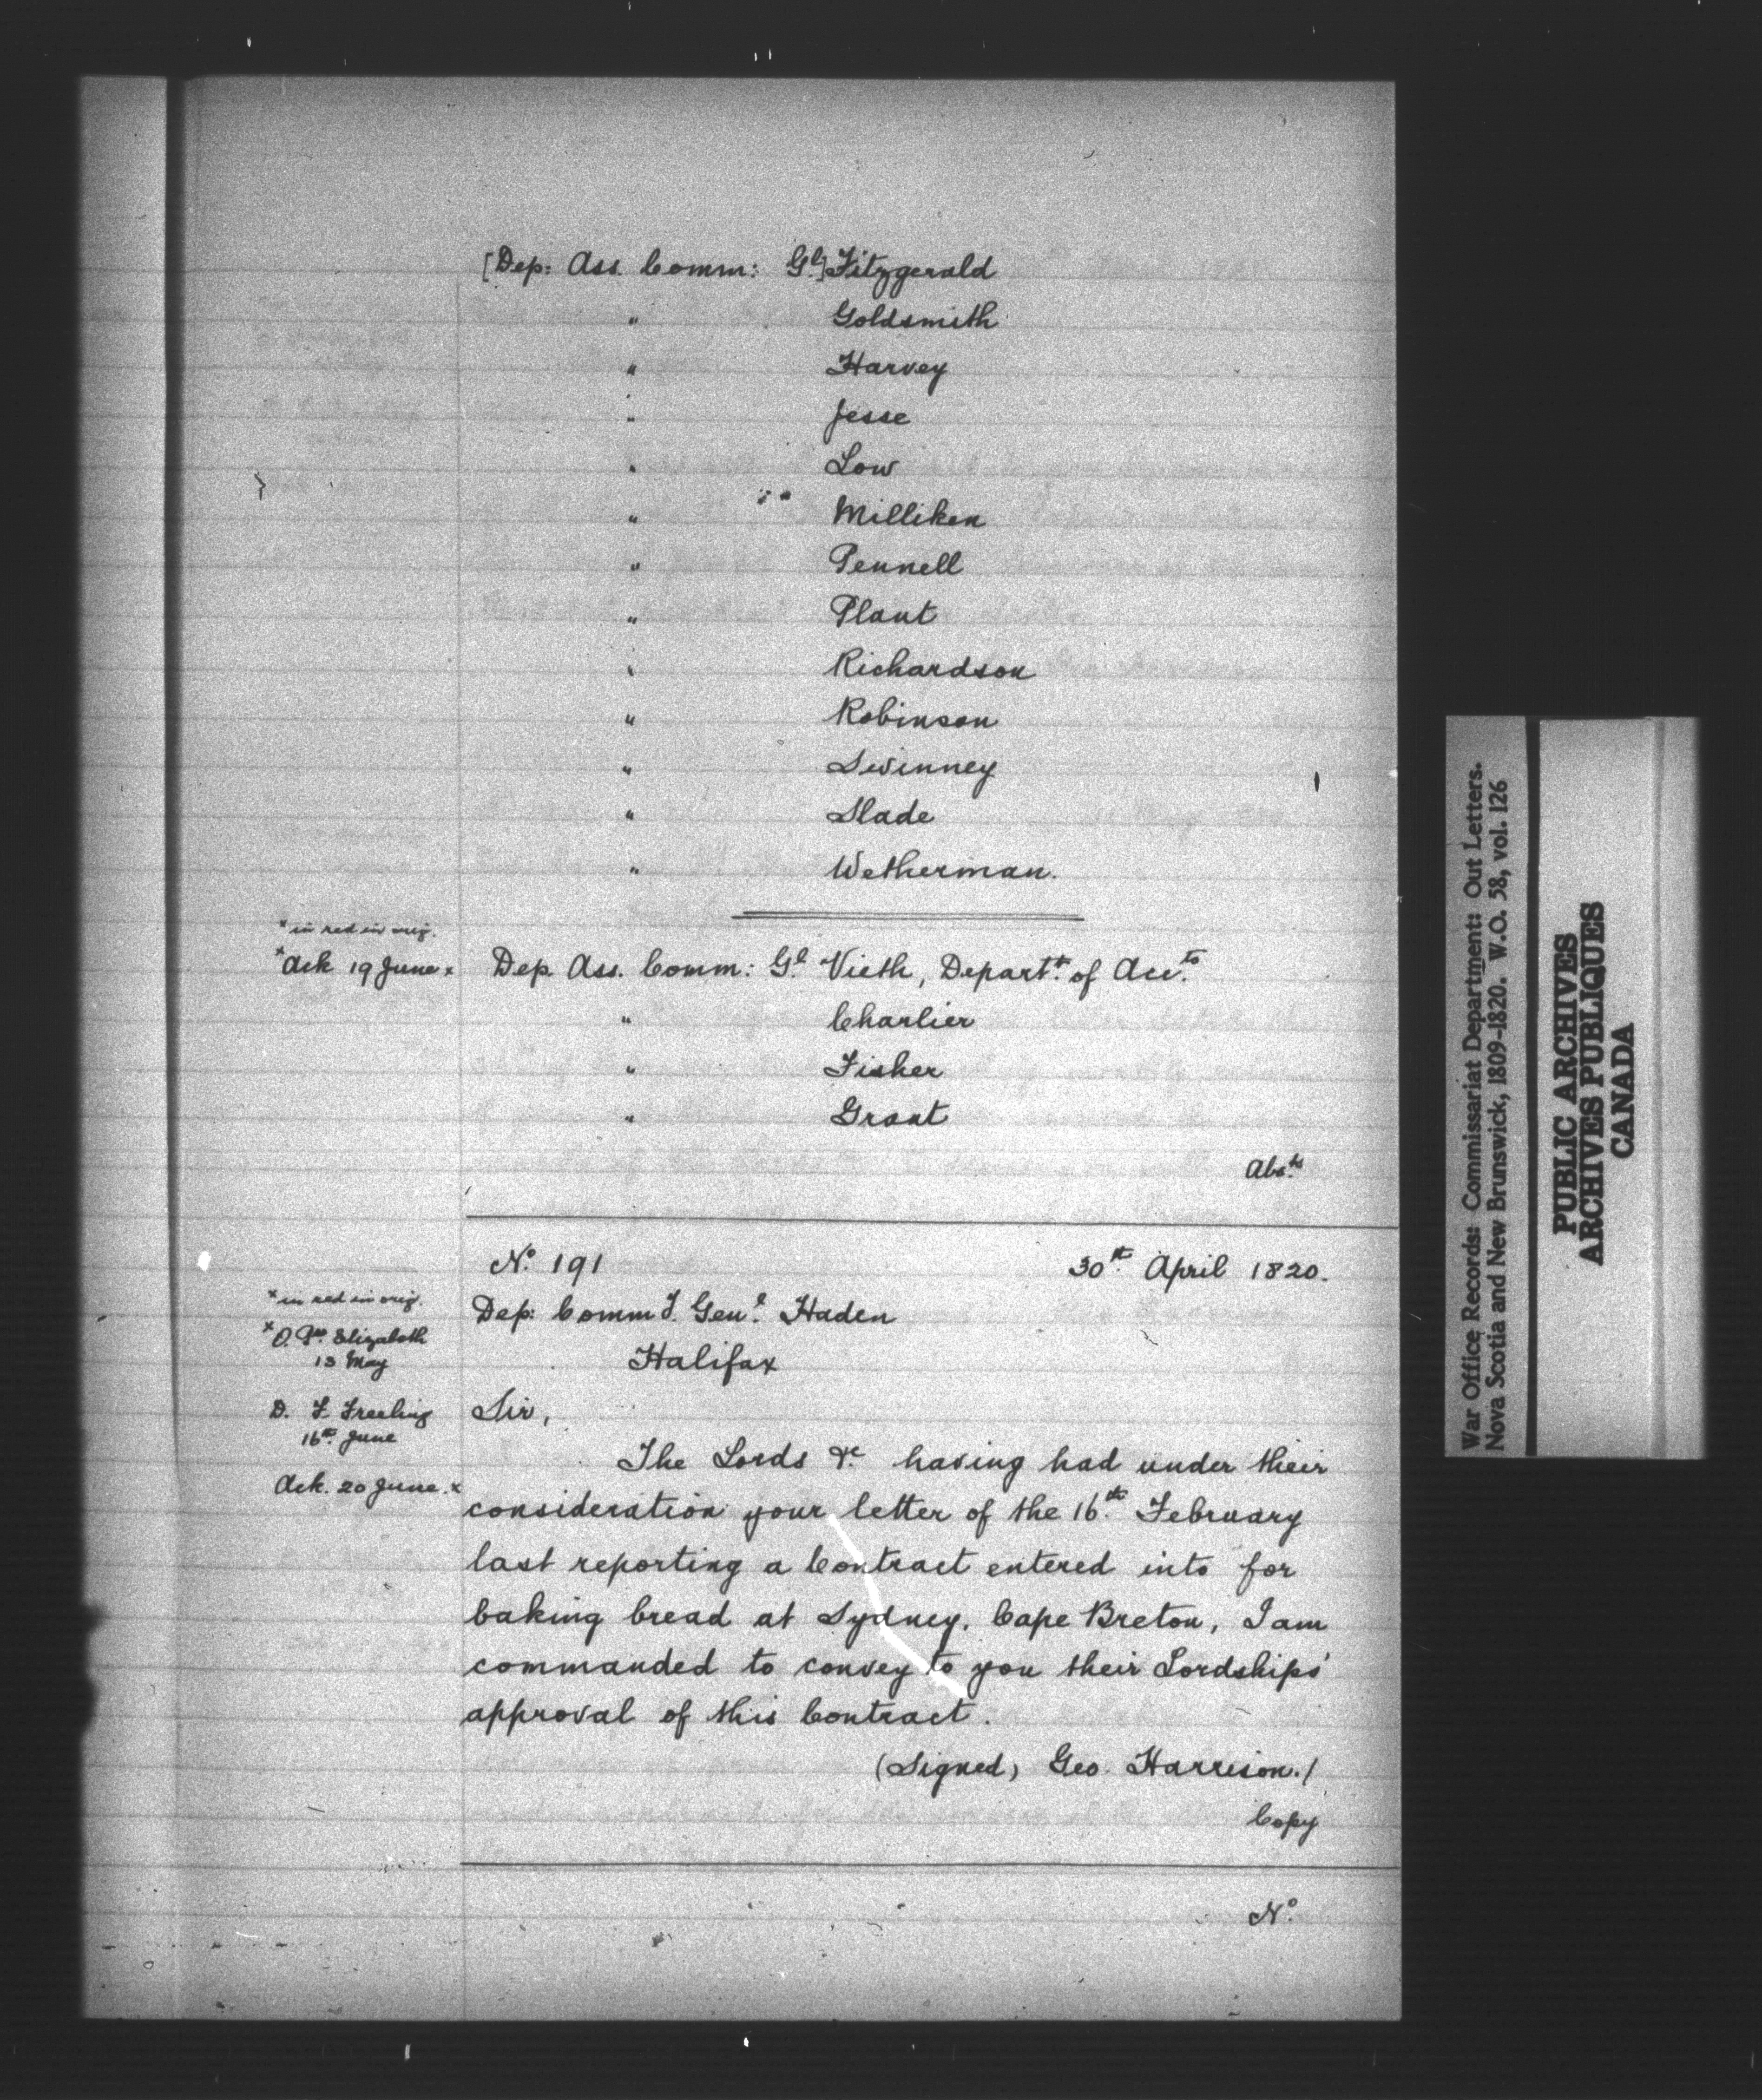 [Dep: Ass. Comm: Gl] Fitzgerald
" Goldsmith
" Harvey
" Jesse
" Low
" Milliken
" Pennell
" Plant
" Richardson
" Robinson
" Swinney
" Slade
" Wetherman.
x in red in orig.
x Ack 19 June x
Dep. Ass. Comm: Gl Vieth, Departt. of Accts.
" Charlier
" Fisher
" Grant
Abs.ts
No. 191 30th. April 1820.
x in red in orig.
Dep: Comm.y Genl. Haden
x O. Pss. Elizabeth
13 May
Halifax
D. F. Freeling
16th. June
Sir,
Ack. 20 June. x
The Lords &c. having had under their
consideration your letter of the 16th. February
last reporting a Contract entered into for
baking bread at Sydney, Cape Breton, I am
commanded to convey to you their Lordships'
approval of this Contract.
(Signed) Geo. Harrison./
Copy
No.
War Office Records: Commissariat Department: Out Letters.
Nova Scotia and New Brunswick, 1809-1820. W.O. 58, vol. 126
PUBLIC ARCHIVES
ARCHIVES PUBLIQUES
CANADA